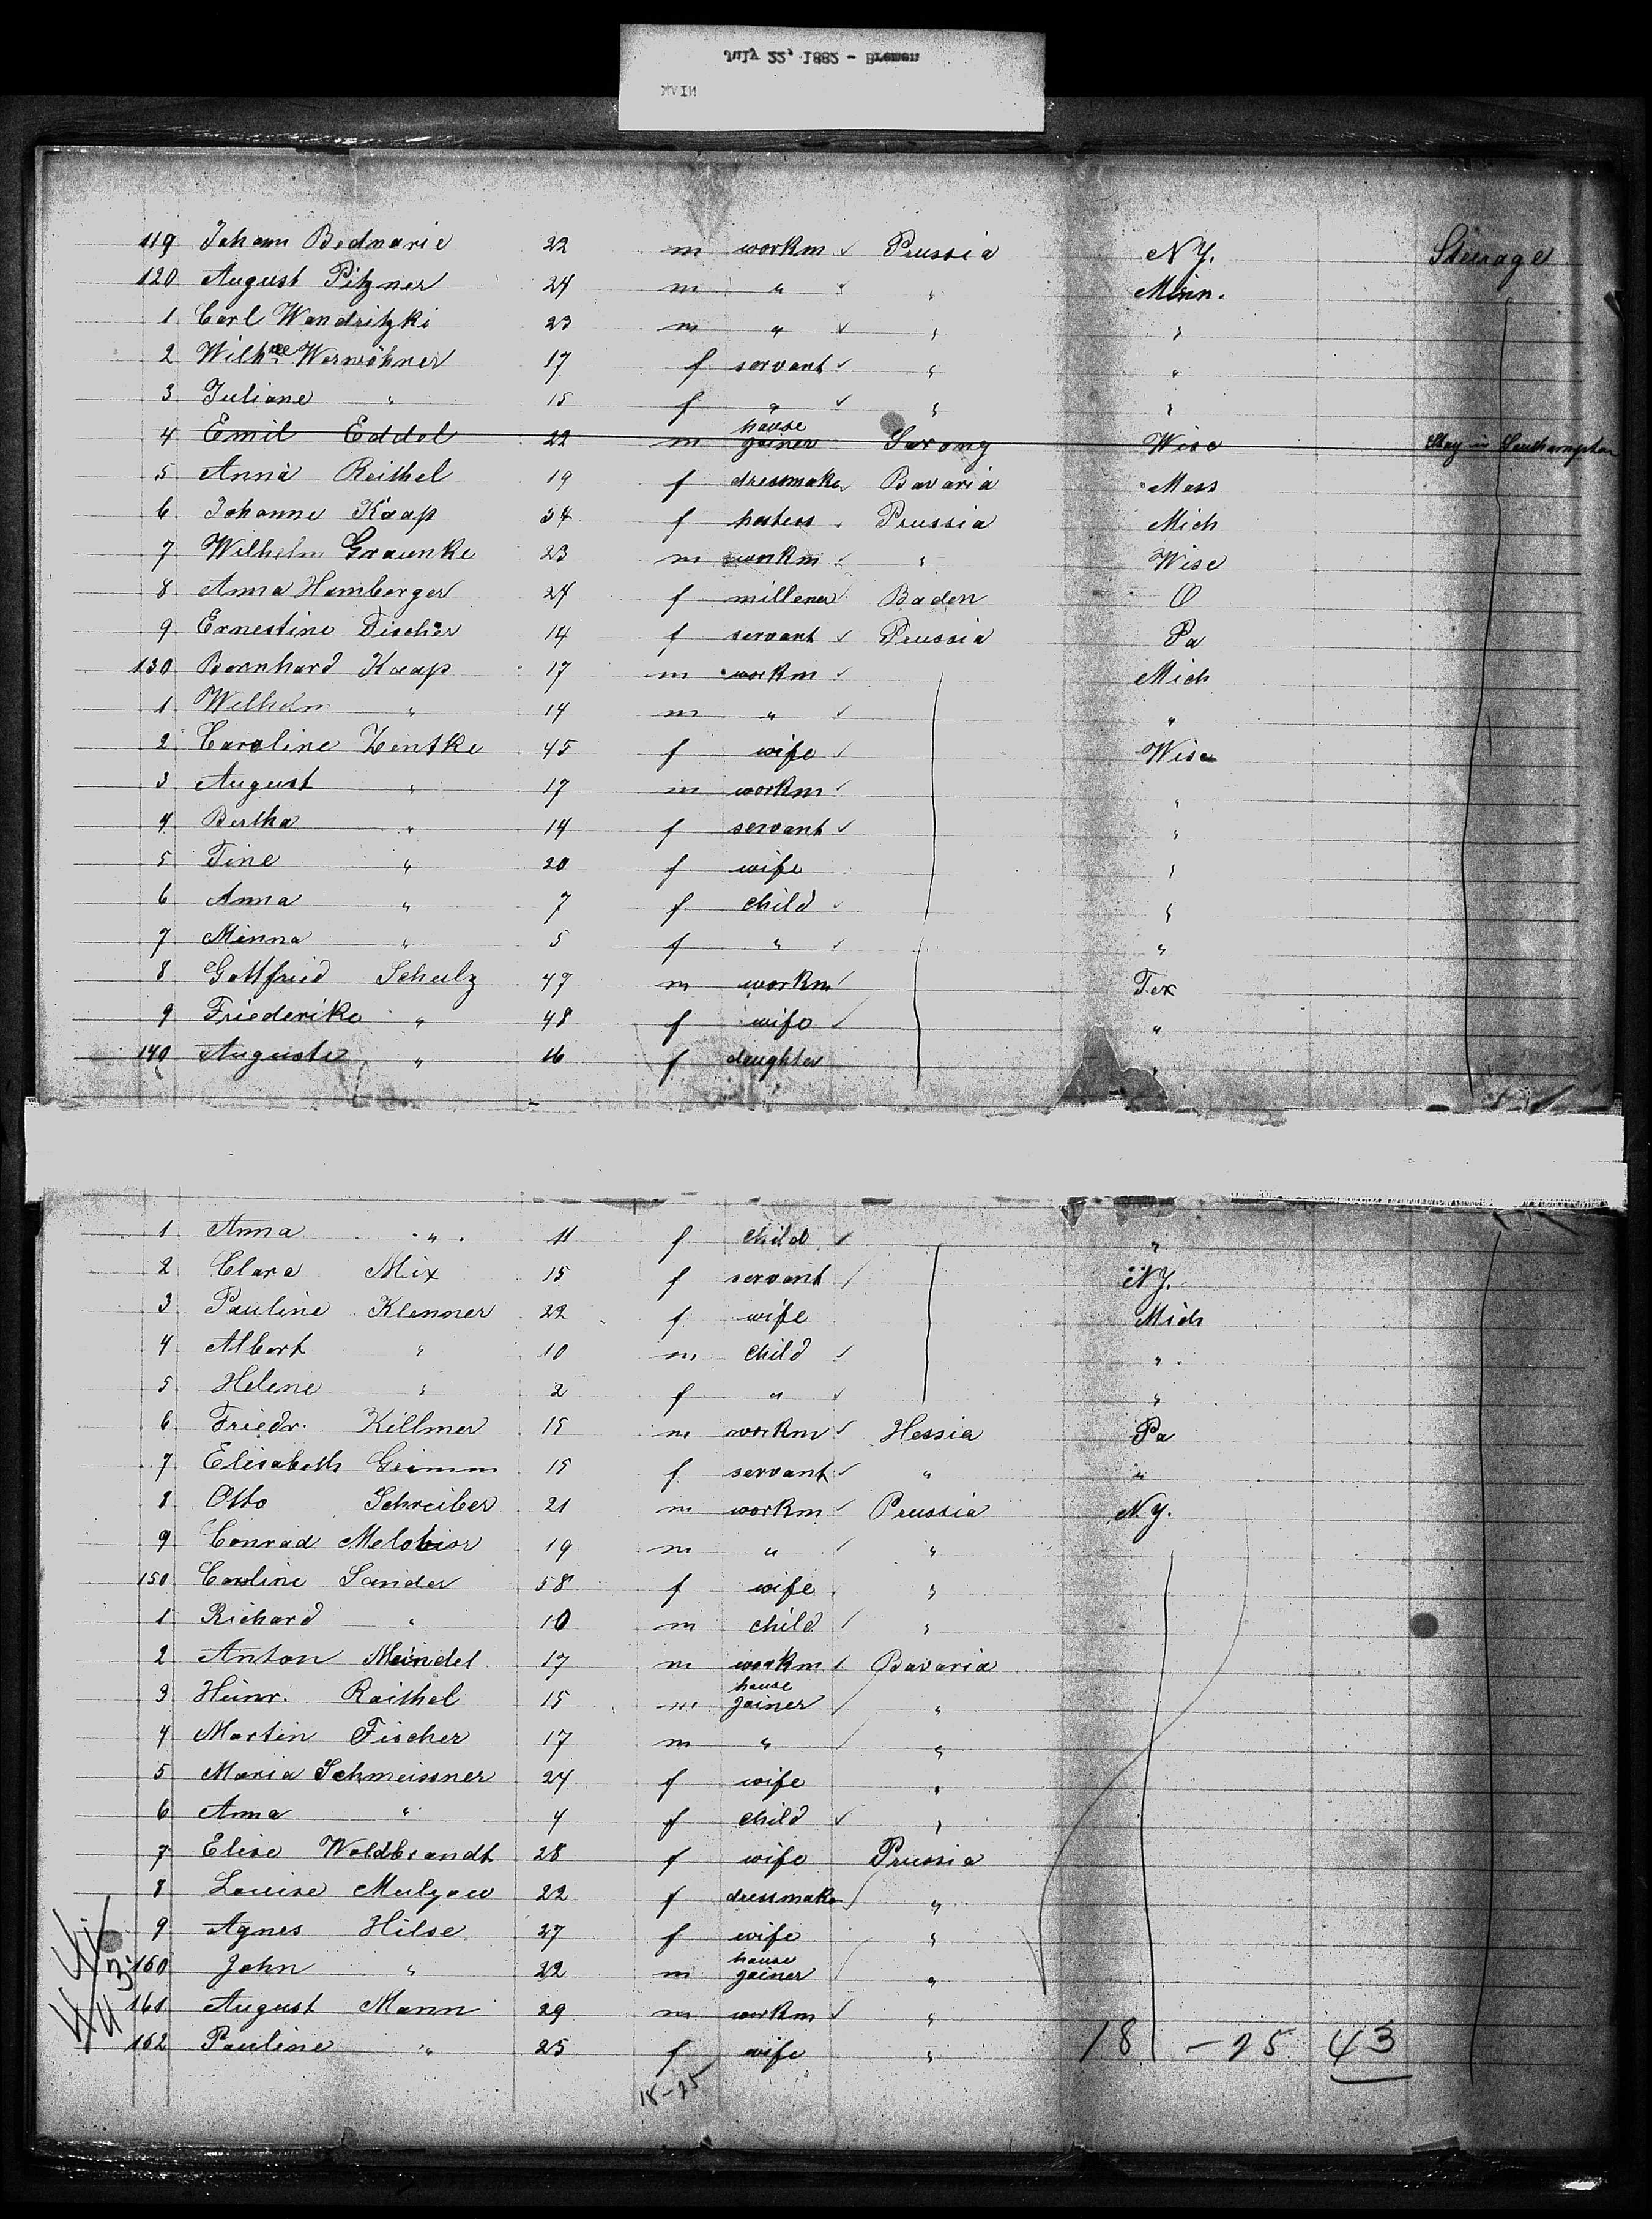 July 22, 1882 - Bremen
MAIN
119 Johann Bednarie 22 m workm ✓ Prussia N.Y. Steerage
120 August Pitzner 24 m " " " Minn.
1 Carl Wandritzki 23 m " ✓ " "
2 Wilhne Werwöhner 17 f servant ✓ " "
3 Juliane " 15 f " ✓ " "
4 Emil Eddel 22 m hause joiner Saxony Wisc Stay in Southampton
5 Anna Reithel 19 f dressmaker Bavaria Mass
6 Johanne Kaap 54 f hostess Prussia Mich
7 Wilhelm Graunke 23 m workm ✓ " Wisc
8 Anna Hamberger 24 f millener Baden O
9 Ernestine Discher 14 f servant ✓ Prussia Pa
130 Bernhard Kaap 17 m workm ✓ Mich
1 Wilhelm " 14 m " ✓ "
2 Caroline Zentke 45 f wife ✓ Wisc
3 August " 17 m workm ✓ "
4 Bertha " 14 f servant ✓ "
5 Tine " 20 f wife "
6 Anna " 7 f child ✓ "
7 Minna " 5 f " ✓ "
8 Gottfried Schulz 47 m workm ✓ Tex
9 Friederike " 48 f wife ✓ "
140 Auguste " 16 f daughter "
1 Anna " 11 f child ✓ "
2 Clara Mix 15 f servant ✓ N.Y.
3 Pauline Klenner 22 f wife Mich
4 Albert " 10 m child ✓ "
5 Helene " 2 f " ✓ "
6 Friedr. Killmer 15 m workm ✓ Hessia Pa
7 Elisabeth Grimm 15 f servant ✓ " "
8 Otto Schreiber 21 m workm ✓ Prussia N.Y.
9 Conrad Melchior 19 m " ✓ "
150 Caroline Sander 58 f wife "
1 Richard " 10 m child ✓ "
2 Anton Meindel 17 m workm ✓ Bavaria
3 Heinr. Raithel 15 m hause joiner ✓ "
4 Martin Fischer 17 m " ✓ "
5 Maria Schmeissner 24 f wife "
6 Anna " 4 f child ✓ "
7 Elise Woldbrandt 28 f wife Prussia
8 Louise Mulzow 22 f dressmaker "
9 Agnes Hilse 27 f wife "
160 John " 22 m hause joiner "
161 August Mann 29 m workm ✓ "
162 Pauline " 25 f wife " 18 - 25 43
18-25